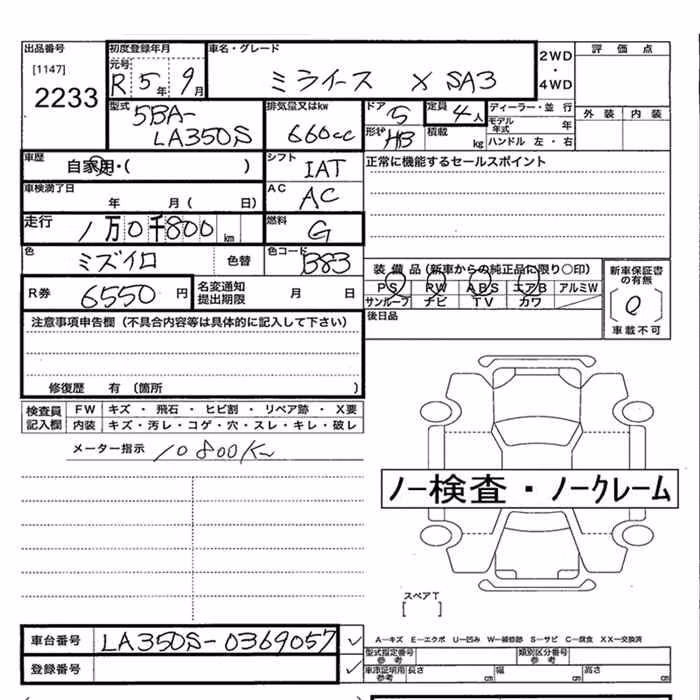 出品番号 初度登録年月 車名・グレード
[1147] 元号
2233 R 5年 9月 ミライース X SA3 2WD・4WD 評価点
型式 5BA-LA350S 排気量又はkw 660cc ドア 5 定員 4人 ディーラー・並行 外装 内装
形状 HB 積載 kg モデル年式 年 ハンドル 左・右
車歴 自家用・( ) シフト IAT 正常に機能するセールスポイント
車検満了日 年 月( 日) AC AC
走行 1万0千800 km 燃料 G
色 ミズイロ 色替 色コード B83
装備品(新車からの純正品に限り○印) 新車保証書の有無
R券 6550円 名変通知提出期限 月 日 PS PW ABS エアB アルミW
サンルーフ ナビ TV カワ 車載不可
注意事項申告欄(不具合内容等は具体的に記入して下さい) 後日品
修復歴 有(箇所 )
検査員記入欄 FW キズ・飛石・ヒビ割・リペア跡・X要
内装 キズ・汚レ・コゲ・穴・スレ・キレ・破レ
メーター指示 10800Km
ノー検査・ノークレーム
スペアT
[ ]
車台番号 LA350S-0369057 A-キズ E-エクボ U-凹み W-補修跡 S-サビ C-腐食 XX-交換済
型式指定番号 参考 類別区分番号 参考
登録番号 車庫証明用参考 長さ cm 幅 cm 高さ cm